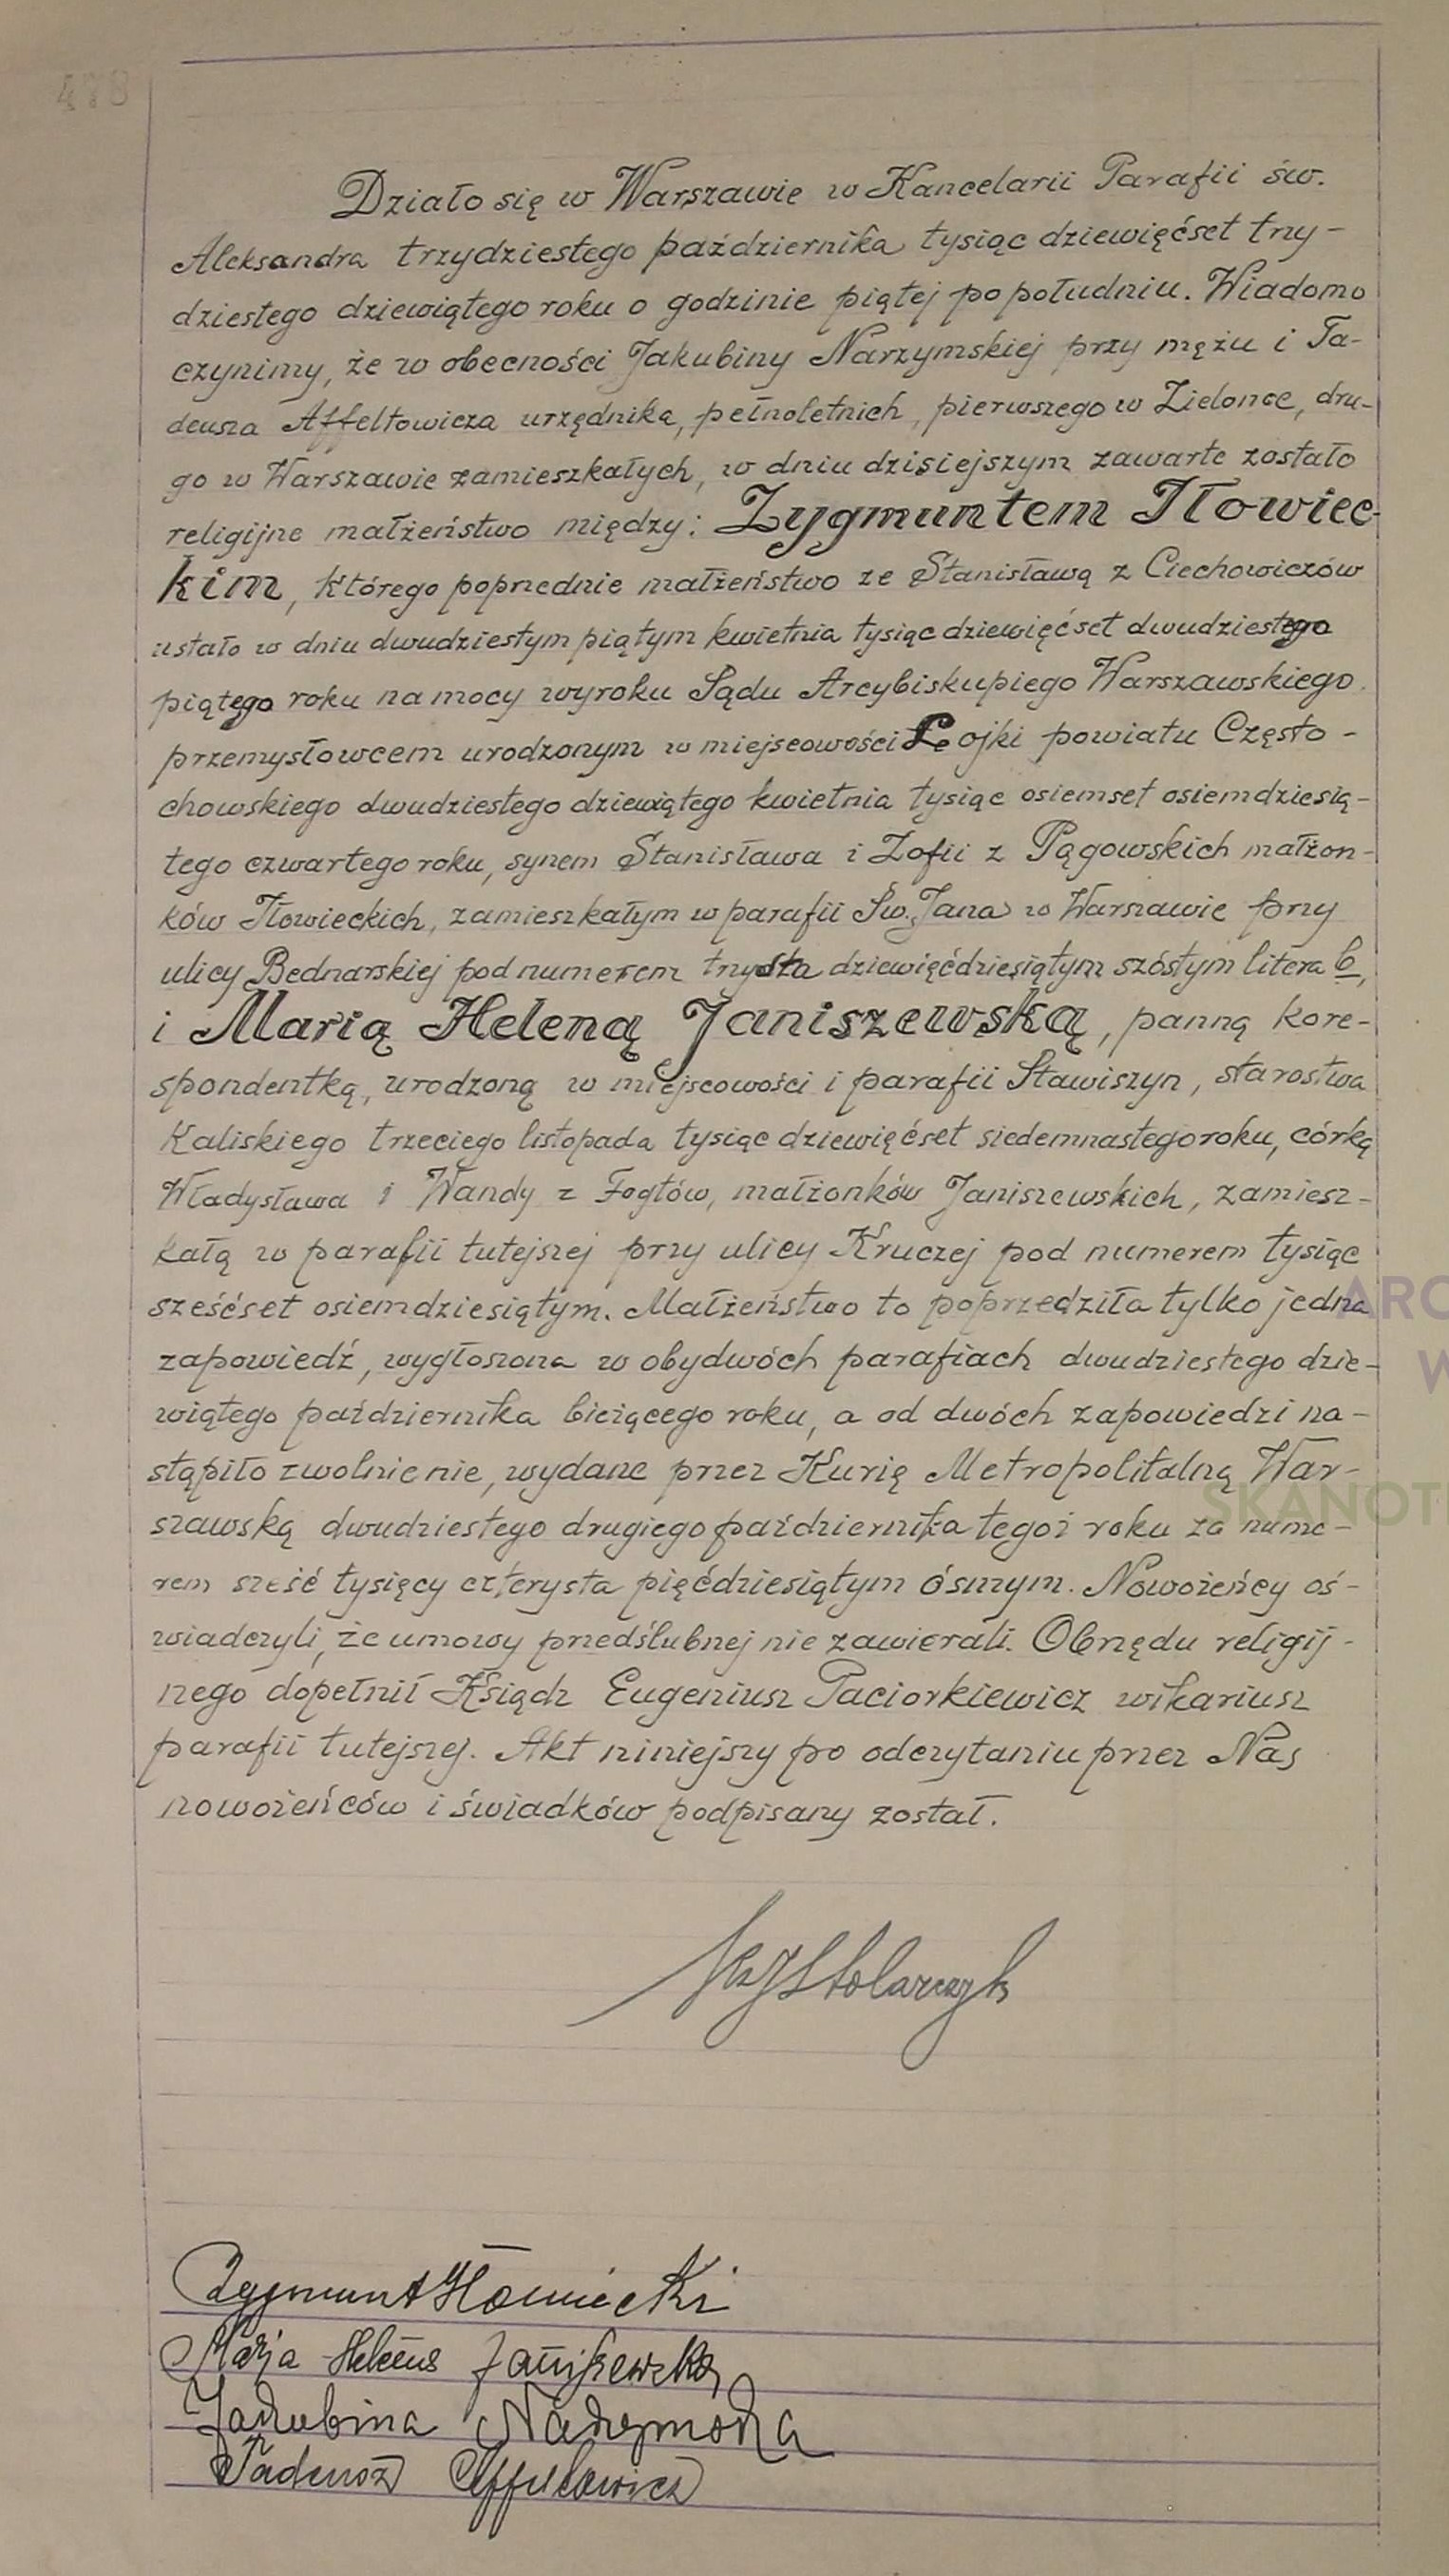 478
Działo się w Warszawie w Kancelarii Parafii św.
Aleksandra trzydziestego października tysiąc dziewięćset trzy-
dziestego dziewiątego roku o godzinie piątej po południu. Wiadomo
czynimy, że w obecności Jakubiny Narzymskiej przy mężu i Ta-
deusza Affeltowicza urzędnika, pełnoletnich, pierwszego w Zielonce, dru-
go w Warszawie zamieszkałych, w dniu dzisiejszym zawarte zostało
religijne małżeństwo między: Zygmuntem Iłowiec-
kim, którego poprzednie małżeństwo ze Stanisławą z Ciechowiczów
ustało w dniu dwudziestym piątym kwietnia tysiąc dziewięćset dwudziestego
piątego roku na mocy wyroku Sądu Arcybiskupiego Warszawskiego.
przemysłowcem urodzonym w miejscowości Łojki powiatu Często-
chowskiego dwudziestego dziewiątego kwietnia tysiąc osiemset osiemdziesią-
tego czwartego roku, synem Stanisława i Zofii z Pągowskich małżon-
ków Iłowieckich, zamieszkałym w parafii Św. Jana w Warszawie przy
ulicy Bednarskiej pod numerem trzysta dziewięćdziesiątym szóstym litera b,
i Marią Heleną Janiszewską, panną kore-
spondentką, urodzoną w miejscowości i parafii Stawiszyn, starostwa
Kaliskiego trzeciego listopada tysiąc dziewięćset siedemnastego roku, córką
Władysława i Wandy z Fogtów, małżonków Janiszewskich, zamiesz-
kałą w parafii tutejszej przy ulicy Kruczej pod numerem tysiąc
sześćset osiemdziesiątym. Małżeństwo to poprzedziła tylko jedna
zapowiedź, wygłoszona w obydwóch parafiach dwudziestego dzie-
wiątego października bieżącego roku, a od dwóch zapowiedzi na-
stąpiło zwolnienie, wydane przez Kurię Metropolitalną War-
szawską dwudziestego drugiego października tegoż roku za nume-
rem sześć tysięcy czterysta pięćdziesiątym ósmym. Nowożeńcy oś-
wiadczyli, że umowy przedślubnej nie zawierali. Obrzędu religij-
nego dopełnił Ksiądz Eugeniusz Paciorkiewicz wikariusz
parafii tutejszej. Akt niniejszy po odczytaniu przez Nas
nowożeńców i świadków podpisany został.
Stolarczyk
Zygmunt Iłowiecki
Marja Helena Janiszewska
Jakubina Narzymska
Tadeusz Affeltowicz
ARC
W
SKANOT